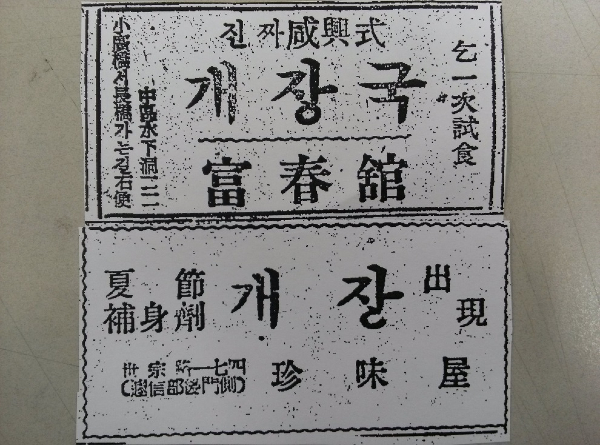 진짜咸興式
개장국
富春舘
乞一次試食
中區水下洞
小廣橋서長橋가는길右便
夏節
補身劑
개장
出現
世宗路一七四
(遞信部後門側)
珍味屋